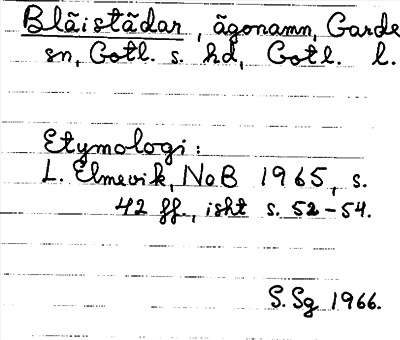 Blãistãdar, ãgonamn, Garde
sn, Gotl. s. hd, Gotl. l.
Etymologi:
L. Elmevik, NoB 1965, s.
42 ff., isht s. 52-54.
S. Sg 1966.